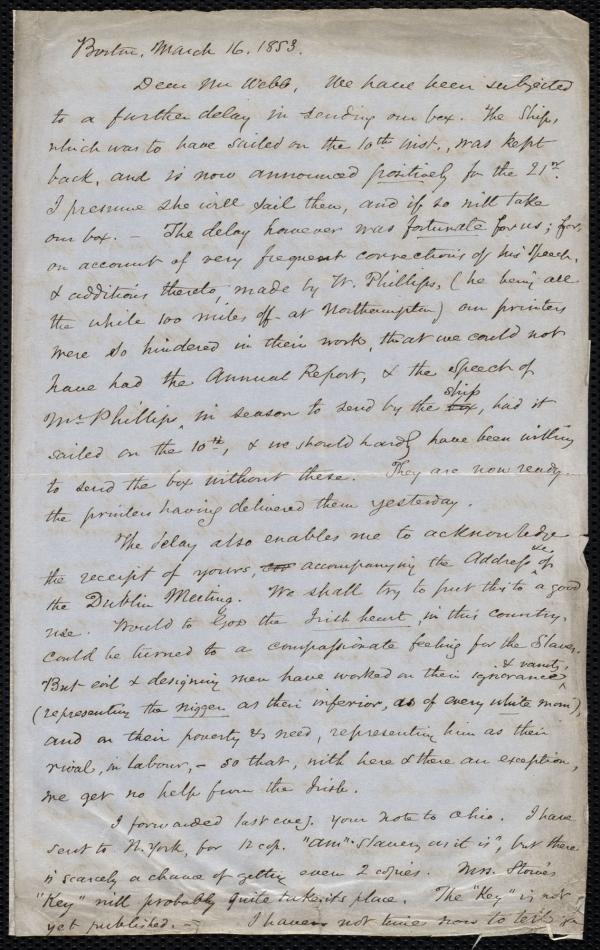 Boston, March 16. 1853.
Dear Mr Webb, We have been subjected
to a further delay in sending our box. The Ship,
which was to have sailed on the 10th inst., was kept
back, and is now announced positively for the 21st.
I presume she will sail then, and if so will take
our box. – The delay however was fortunate for us; for,
on account of very frequent corrections of his Speech,
& additions thereto, made by W. Phillips, (he being all
the while 100 miles off – at Northampton) our printers
were so hindered in their work, that we could not
have had the Annual Report, & the Speech of
Mr. Phillips, in season to send by the box ship, had it
sailed on the 10th, & we should hardly have been willing
to send the box without these. They are now ready –
the printers having delivered them yesterday.
The delay also enables me to acknowledge
the receipt of yours, accompanying the Address of
the Dublin Meeting. We shall try to put this to a good
use. Would to God the Irish heart, in this country,
could be turned to a compassionate feeling for the Slave.
But evil & designing men have worked on their ignorance & vanity,
(representing the nigger as their inferior, as of every white man),
and on their poverty & need, representing him as their
rival, in labour, – so that, with here & there an exception,
we get no help from the Irish.
I forwarded last eveg. your note to Ohio. I have
sent to N. York, for 12 cop. "Am". Slavery as it is", but there
is scarcely a chance of getting even 2 copies. Mrs. Stowe's
"Key" will probably quite take its place. The "Key" is not
yet published. – I have not time now to